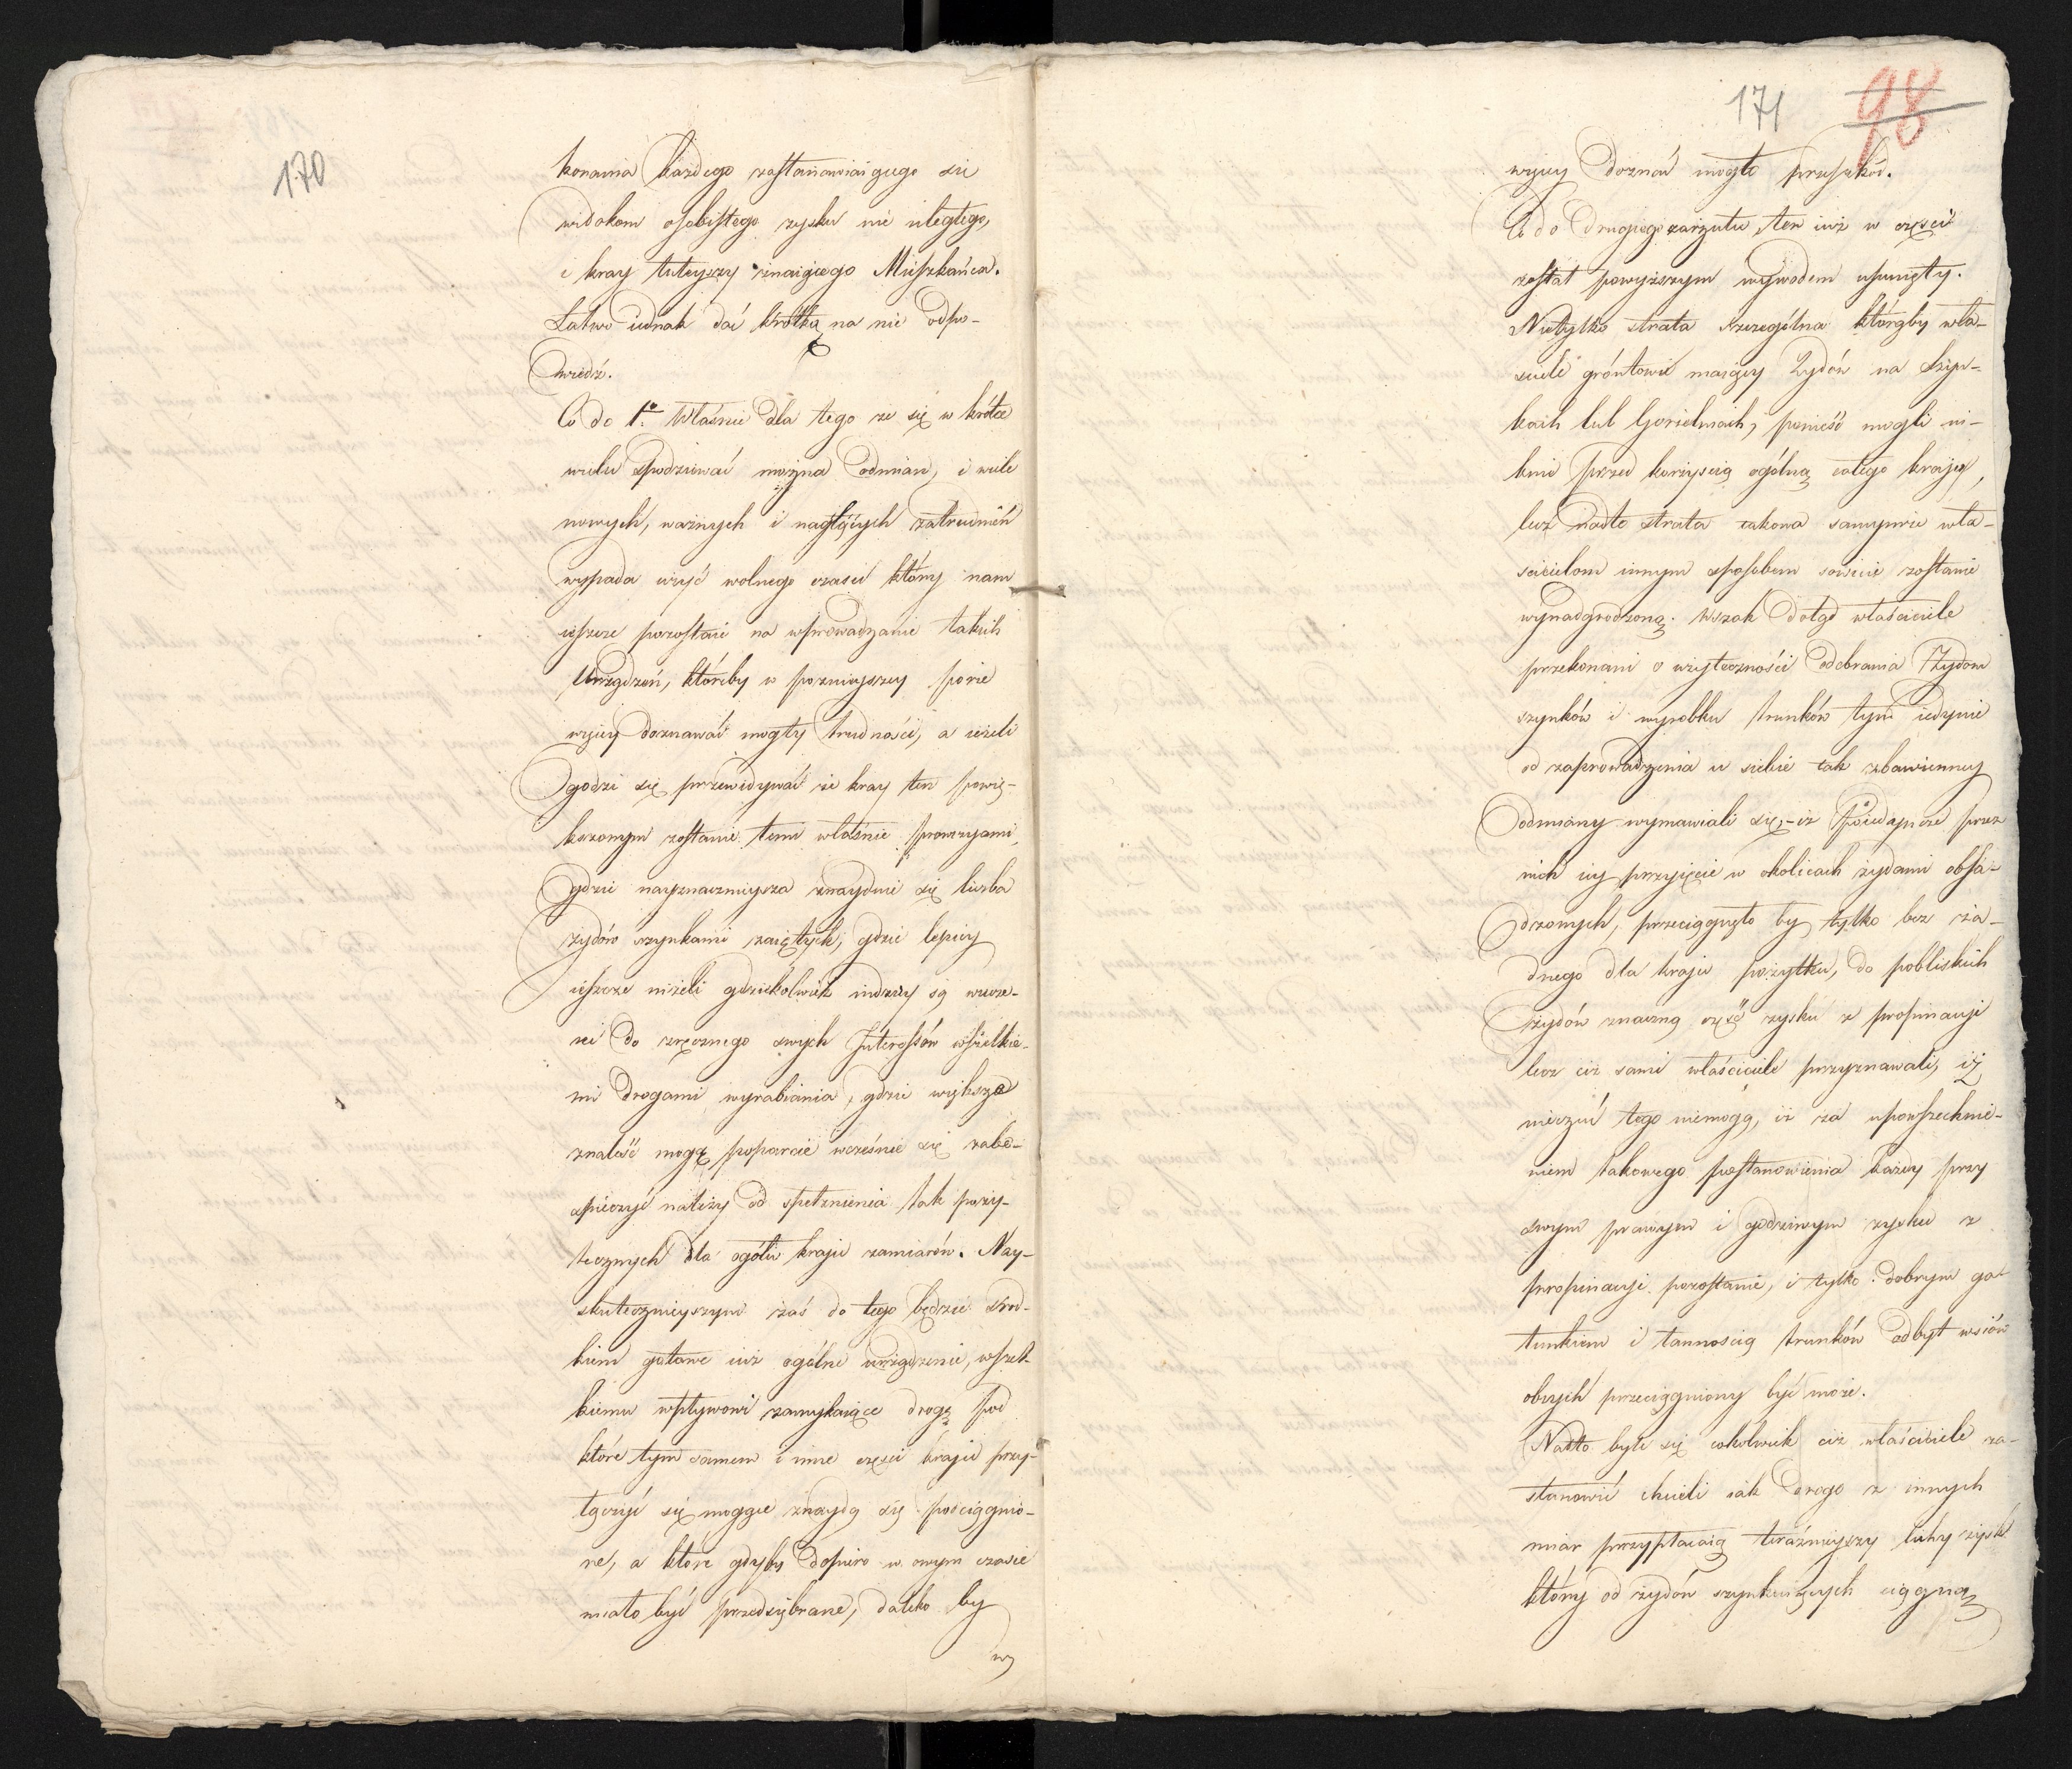 170
konania każdego zastanawiaiącego sie
widokom osobistego zysku nie uległego,
i kray tuteyszy znaiącego Mieszkańca.
Łatwo iednak dać krótką na nie odpo-
wiedź.
Co do 1º Właśnie dla tego że się w krótce
wielu spodziewać można odmian, i wiele
nowych, ważnych i naglących zatrudnień
wypada użyć wolnego czasu który nam
ieszcze pozostaie na wprowadzanie takich
Urządzeń, któreby w poznieyszey porze
więcey doznawać mogły trudności, a ieżeli
godzi się przewidywać że kray ten powię-
kszonym zostanie temi właśnie prowincyami,
gdzie nayznacznieysza znayduie się liczba
żydów szynkami zaiętych, gdzie lepiey
ieszcze niżeli gdziekolwiek indziey są wucze-
ni do zręcznego swych Interessów wszelkie-
mi drogami wyrabiania, gdzie większe
znaleść mogą poparcie wcześnie się zabe-
spieczyć należy od spełznienia tak poży-
tecznych dla ogółu kraju zamiarów. Nay-
skutecznieyszym zaś do tego będzie środ-
kiem gotowe iuż ogólne urządzenie, wszel-
kiemu wpływowi zamykaiące drogę pod
które tym samem i inne części kraju przy-
łączyć się mogące znaydą się pociągnio-
ne, a które gdyby dopiero w owym czasie
miało być przedsiębrane, daleko by
wy
171
98
więcey doznać mogło przeszkód.
Co do drugiego zarzutu, ten iuż w części
został powyższym wywodem usunięty.
Nietylko strata szczególna którąby wła-
sciele gróntowi maiący Żydów na Szyn-
kach lub Gorzelniach, ponieść mogli ni-
knie przed korzyścią ogólną całego kraju,
lecz nadto strata takowa samymże wła-
scicielom innym sposobem sowicie zostanie
wynadgrodzoną. Wszak dotąd właściciele
przekonani o użyteczności odebrania Żydom
szynków i wyrobku trunków tym iedynie
od zaprowadzenia u siebie tak zbawienney
odmiany wymawiali się, iż Poiedyncze przez
nich iey przyięcie w okolicach żydami obsa-
dzonych, przeciągnęło by tylko bez ża-
dnego dla kraju pożytku, do pobliskich
żydów znaczną część zysku z propinacyi
lecz ciż sami właściciele przyznawali, iż
nieczuć tego niemogą, iż za upowszechnie-
niem takowego postanowienia każdy przy
swym prawym i godziwym zysku z
propinacyi pozostanie, i tylko dobrym ga-
tunkiem i tannoscią trunków odbyt wsiów
obcych przeciągniony być może.
Nadto byle się cokolwiek ciż właściciele za-
stanowić chcieli iak drogo z innych
miar przypłacaią teraźnieyszy lichy zysk
który od żydów szynkuiących ciągną